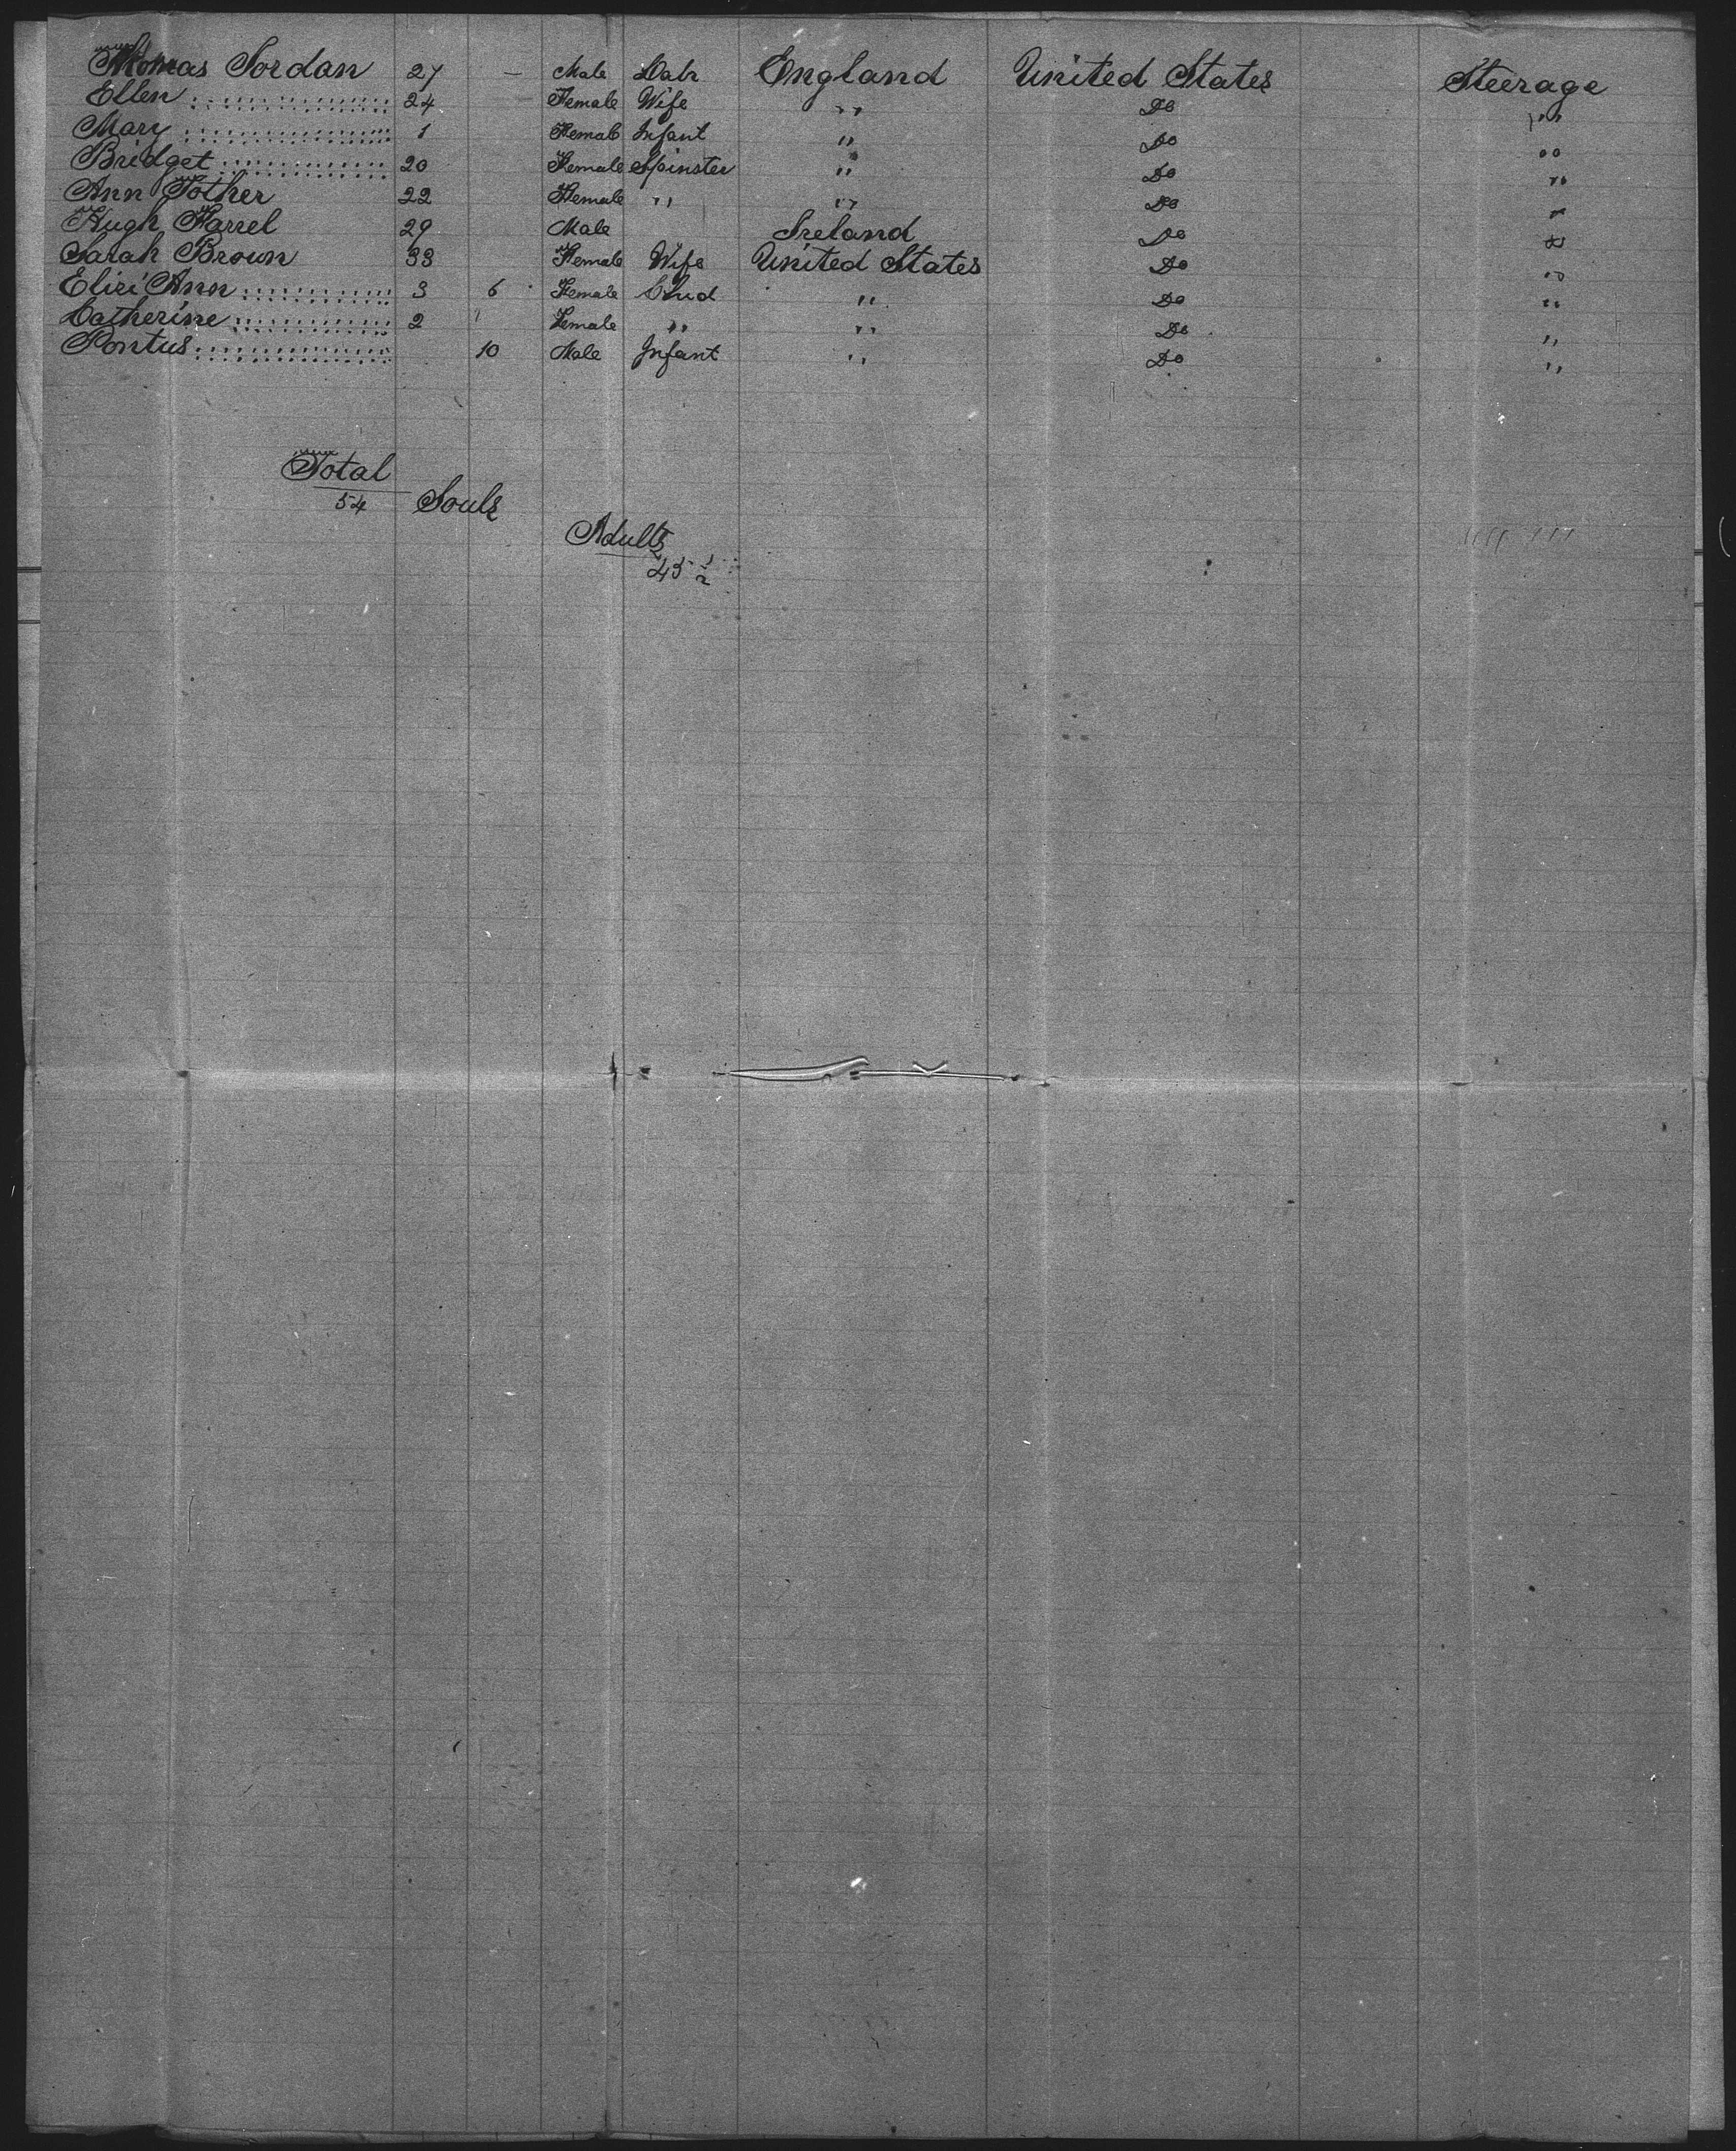 Thomas Jordan 27 — Male Labr England United States Steerage
Ellen 24 Female Wife " Do "
Mary 1 Female Infant " Do "
Bridget 20 Female Spinster " Do "
Ann Tother 22 Female " " Do "
Hugh Farrel 29 Male Ireland Do "
Sarah Brown 33 Female Wife United States Do "
Ann 3 6 Female Child " Do "
Catherine 2 Female " " Do "
Pontus 10 Male Infant " Do "
Total
54 Souls
Adults
45 1/2